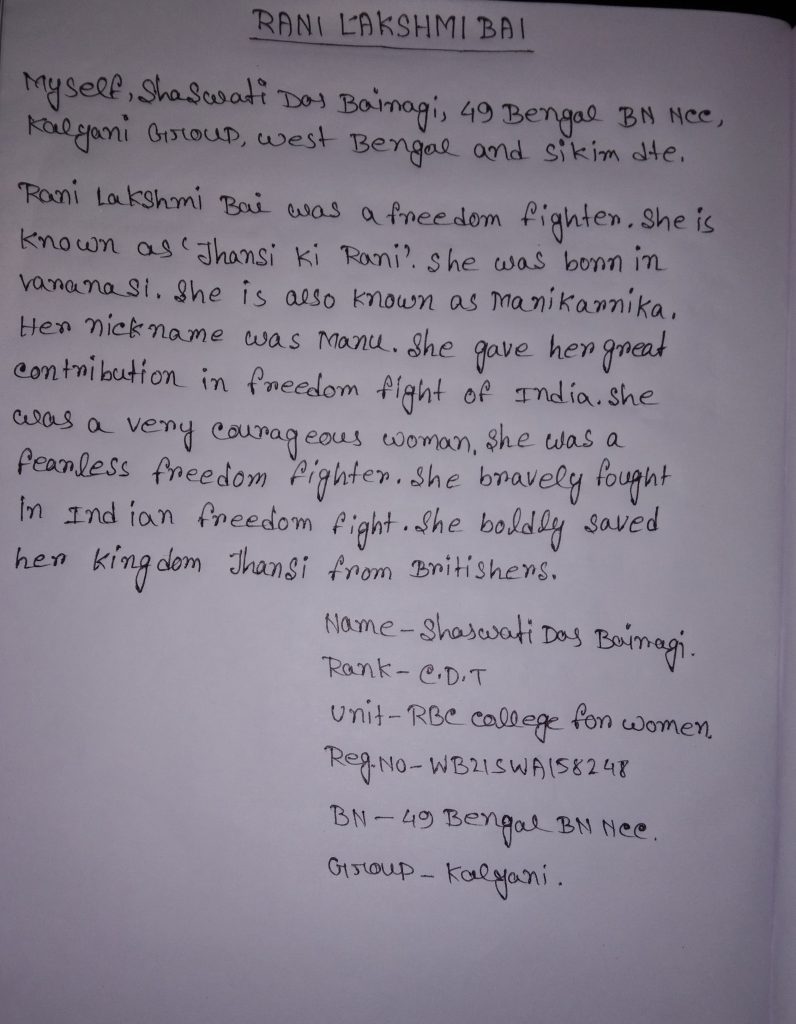 RANI LAKSHMI BAI
Myself, Shaswati Das Bairagi, 49 Bengal BN NCC,
Kalyani Group, west Bengal and sikim dte.
Rani Lakshmi Bai was a freedom fighter. She is
known as 'Jhansi ki Rani'. She was born in
varanasi. She is also known as Manikarnika.
Her nickname was Manu. She gave her great
contribution in freedom fight of India. She
was a very courageous woman. She was a
fearless freedom fighter. She bravely fought
in Indian freedom fight. She boldly saved
her kingdom Jhansi from Britishers.
Name - Shaswati Das Bairagi.
Rank - C.D.T
Unit - RBC college for women.
Reg.No - WB21SWA158248
BN - 49 Bengal BN NCC.
Group - Kalyani.